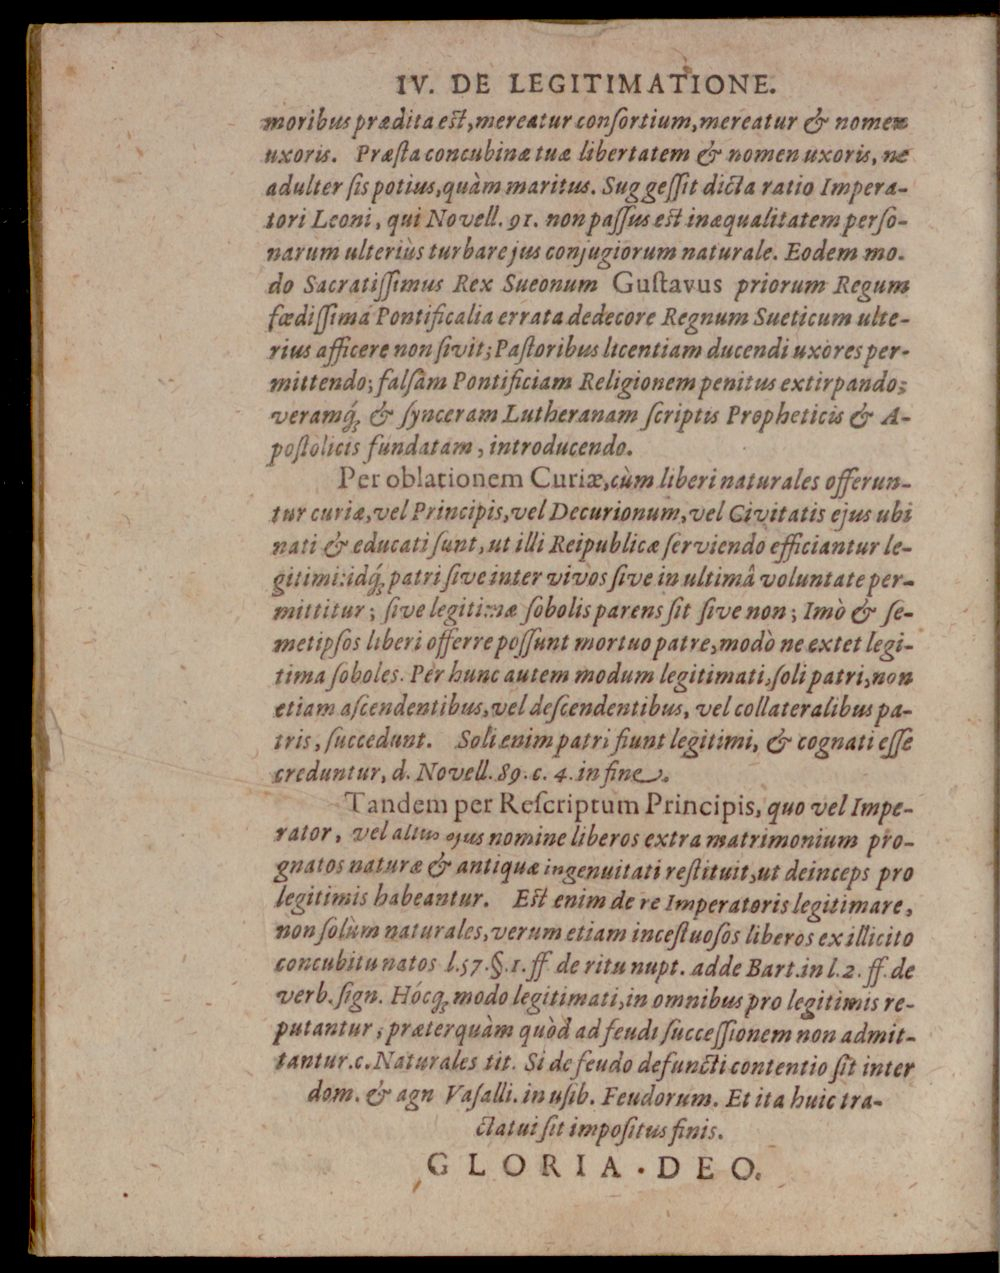 IV. DE LEGITIMATIONE.
moribus prædita eſt, mereatur conſortium, mereatur & nomen
uxoris. Præſta concubinæ tuæ libertatem & nomen uxoris, ne
adulter ſis potius, quàm maritus. Suggeſſit dicta ratio Impera-
tori Leoni, qui Novell. 91. non paſſus eſt inæqualitatem perſo-
narum ulteriùs turbare jus conjugiorum naturale. Eodem mo-
do Sacratiſſimus Rex Sueonum Guſtavus priorum Regum
fœdiſſimâ Pontificalia errata dedecore Regnum Sueticum ulte-
rius afficere non ſivit; Paſtoribus licentiam ducendi uxores per-
mittendo; falſam Pontificiam Religionem penitus extirpando;
veramq́; & ſynceram Lutheranam ſcriptis Propheticis & A-
poſtolicis fundatam, introducendo.
Per oblationem Curiæ, cùm liberi naturales offerun-
tur curiæ, vel Principis, vel Decurionum, vel Civitatis ejus ubi
nati & educati ſunt, ut illi Reipublicæ ſerviendo efficiantur le-
gitimi: idq́; patri ſive inter vivos ſive in ultimâ voluntate per-
mittitur; ſive legitimæ ſobolis parens ſit ſive non; Imò & ſe-
metipſos liberi offerre poſſunt mortuo patre, modò ne extet legi-
tima ſoboles. Per hunc autem modum legitimati, ſoli patri, non
etiam aſcendentibus, vel deſcendentibus, vel collateralibus pa-
tris, ſuccedunt. Soli enim patri fiunt legitimi, & cognati eſſe
creduntur, d. Novell. 89. c. 4. in fine.
Tandem per Reſcriptum Principis, quo vel Impe-
rator, vel alius ejus nomine liberos extra matrimonium pro-
gnatos naturæ & antiquæ ingenuitati reſtituit, ut deinceps pro
legitimis habeantur. Eſt enim de re Imperatoris legitimare,
non ſolùm naturales, verum etiam inceſtuoſos liberos ex illicito
concubitu natos l. 57. §. 1. ff. de ritu nupt. adde Bart. in l. 2. ff. de
verb. ſign. Hócq́; modo legitimati, in omnibus pro legitimis re-
putantur; præterquàm quòd ad feudi ſucceſſionem non admit-
tantur. c. Naturales tit. Si de feudo defuncti contentio ſit inter
dom. & agn Vaſalli. in uſib. Feudorum. Et ita huic tra-
ctatui ſit impoſitus finis.
GLORIA . DEO.